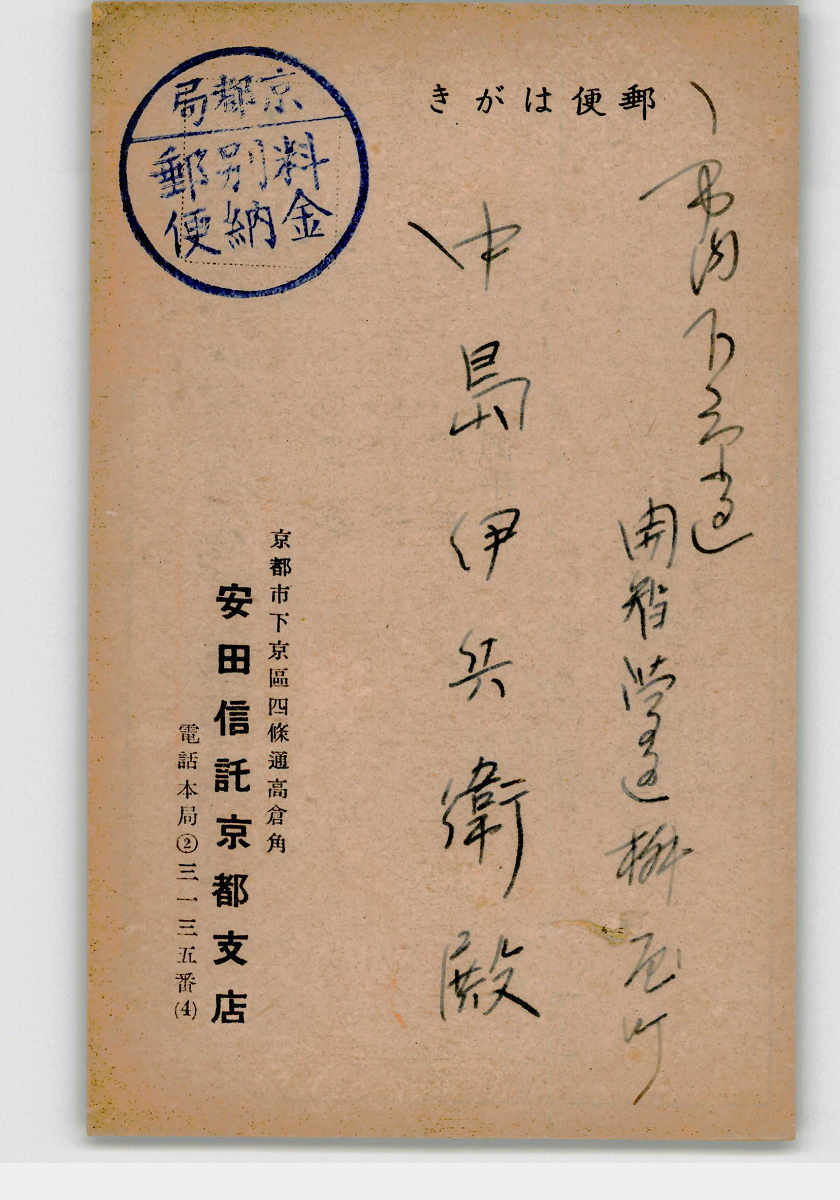 郵便はがき
京都局
料金
別納
郵便
市内下京
開智學 桝屋町
中島伊兵衛殿
京都市下京區四條通高倉角
安田信託京都支店
電話本局②三一三五番(4)